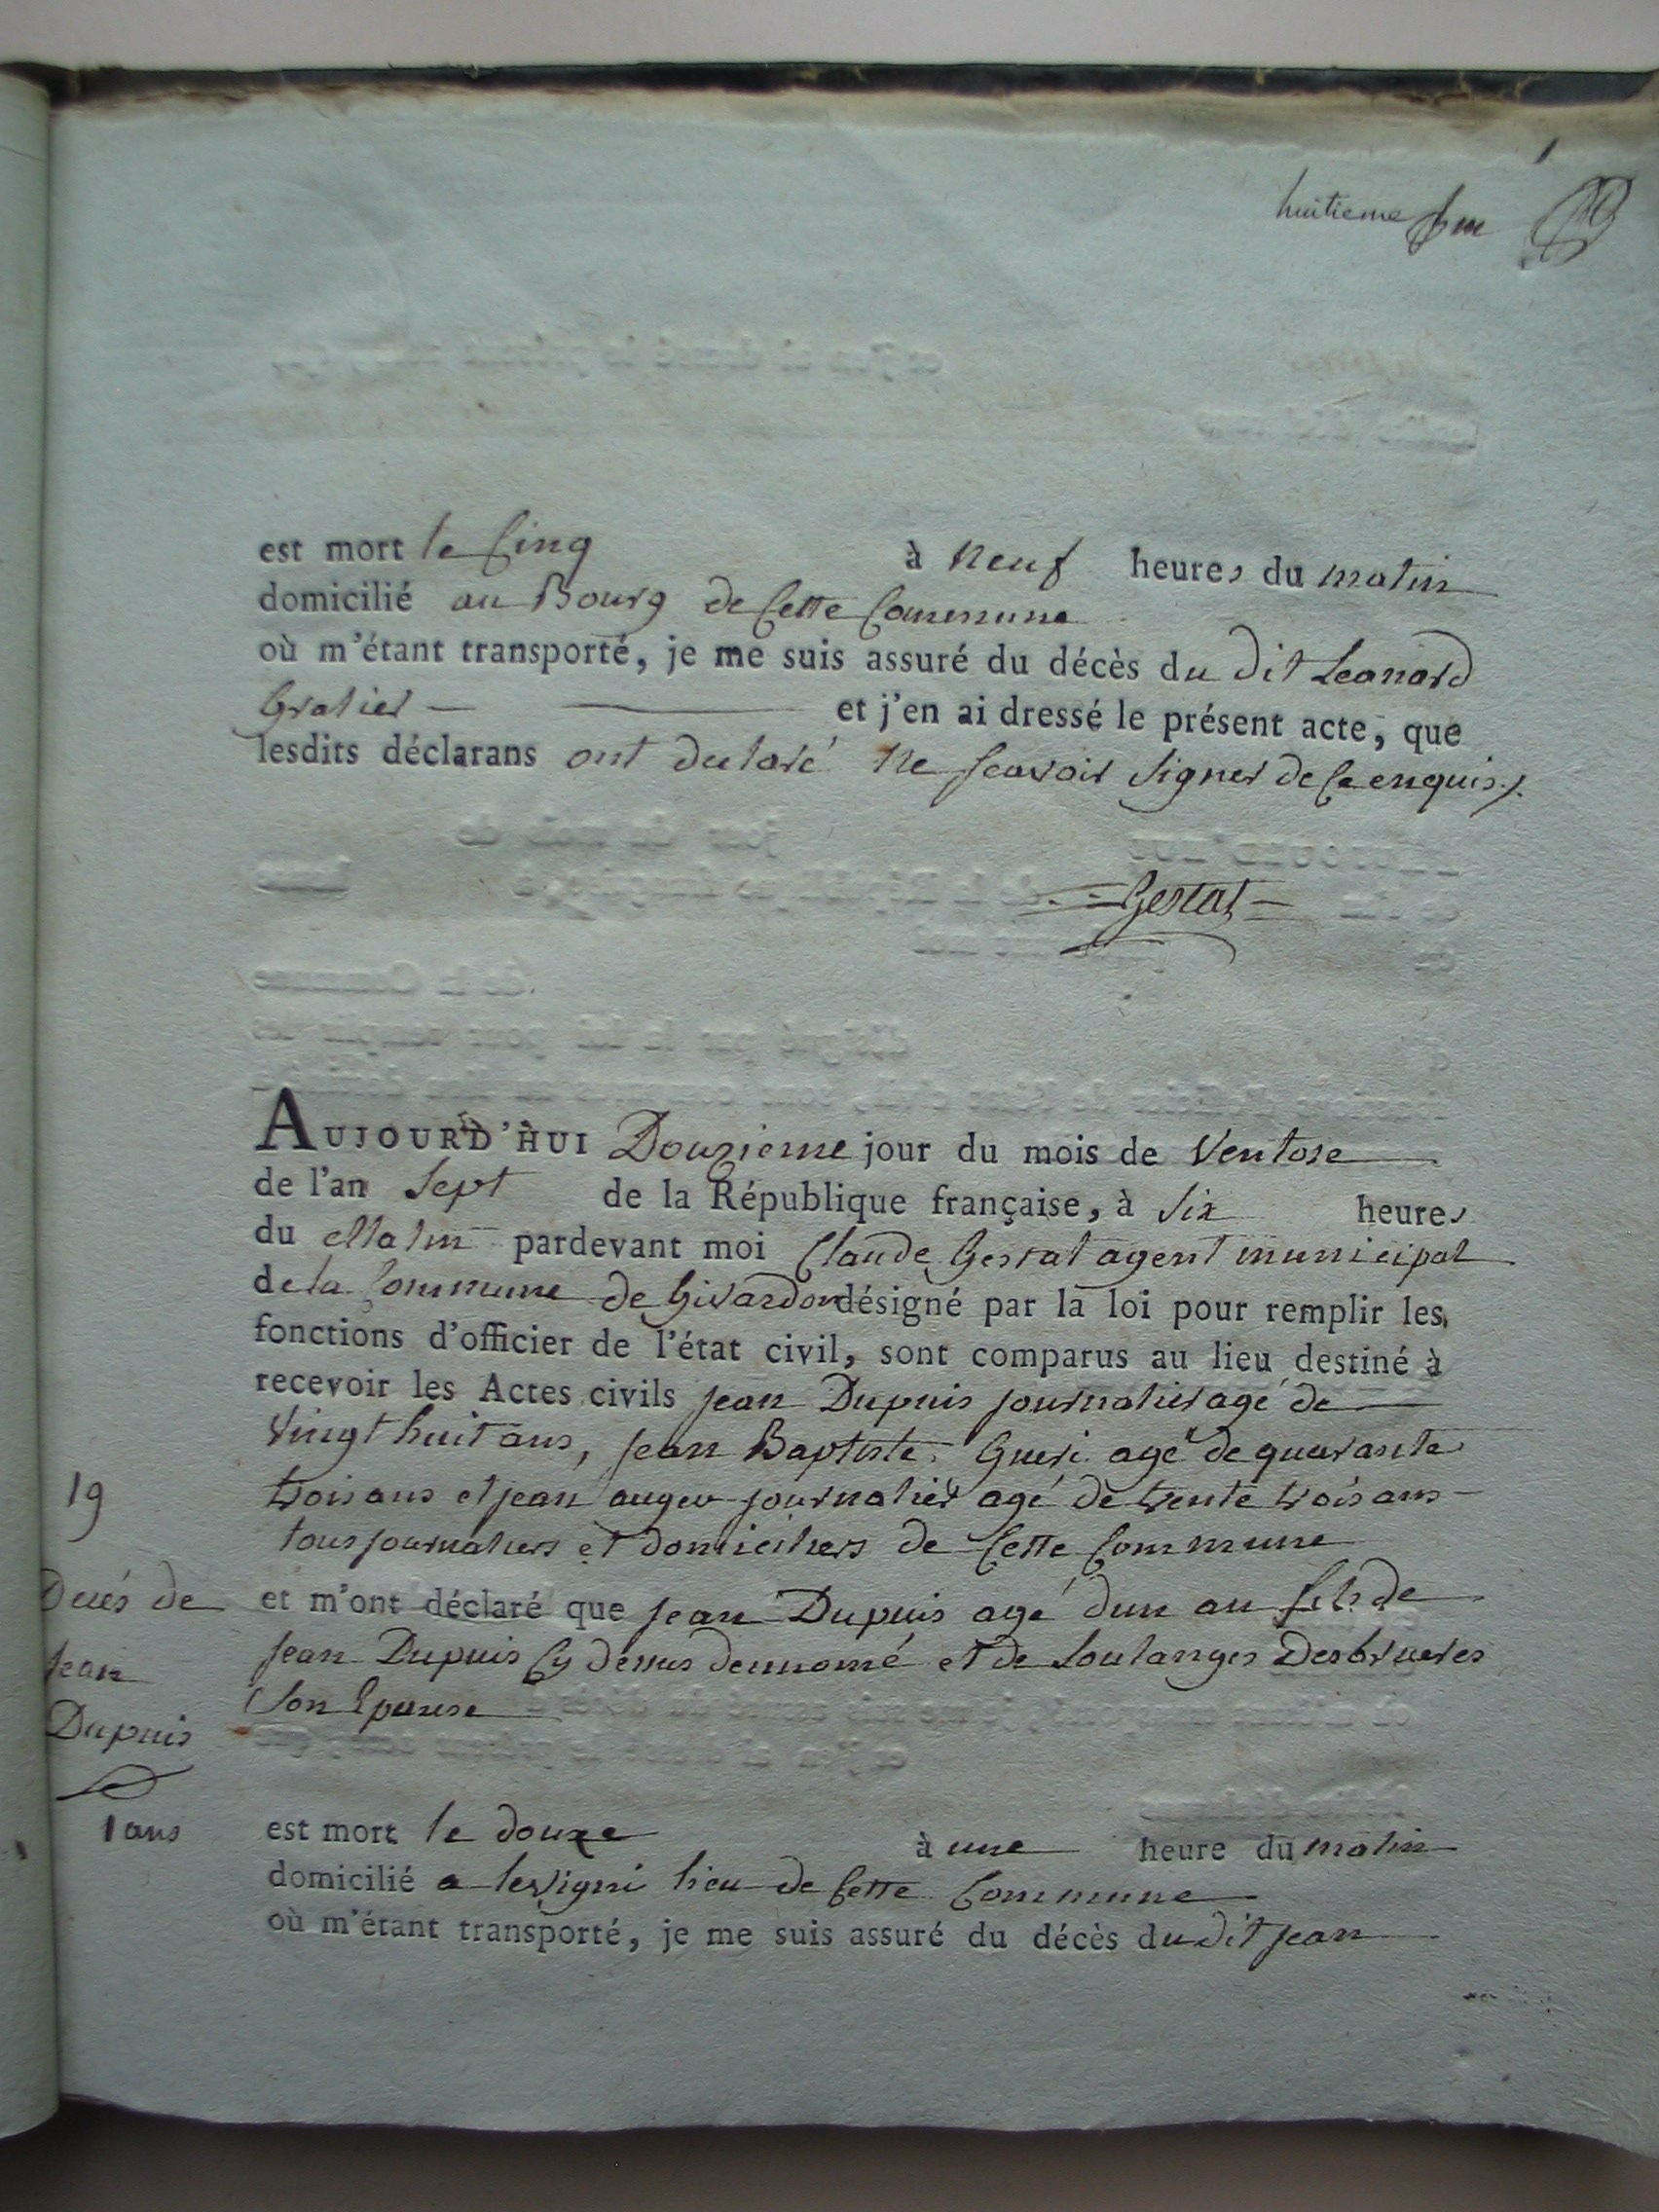 huitieme
est mort le Cinq à neuf heures du matin
domicilié au Bourg de Cette Commune
où m'étant transporté, je me suis assuré du décès du dit Leonard
Gratier — et j'en ai dressé le présent acte, que
lesdits déclarans ont declaré Ne scavoir signer de Ce enquis ./.
Gestat
AUJOURD'HUI Douzieme jour du mois de Ventose
de l'an Sept de la République française, à Six heures
du Matin pardevant moi Claude Gestat agent municipal
de la Commune de Givardon désigné par la loi pour remplir les
fonctions d'officier de l'état civil, sont comparus au lieu destiné à
recevoir les Actes civils jean Dupuis journalier agé de
Vingt huit ans, jean Baptiste Gueri agé de quarante
trois ans et jean augeu journalier agé de trente trois ans
tous journaliers et domiciliers de Cette Commune
19
Décés de
Jean
Dupuis
1 ans
et m'ont déclaré que jean Dupuis agé d'un an fils de
jean Dupuis Cy dessus dennomé et de Soulanges Desbrueres
Son Epouse
est mort le douze à une heure du matin
domicilié a lesvigni lieu de Cette Commune
où m'étant transporté, je me suis assuré du décès du dit jean